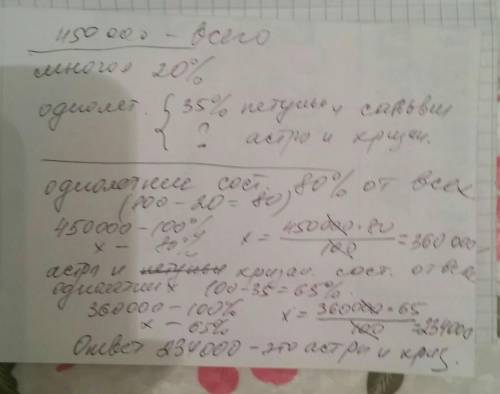 450000 – всего
многол 20%
однолет. { 35% петуньи и сальвии
? астр и хризан.
однолетние сост. 80% от всех
(100 - 20 = 80)
450000 – 100%
x – 80%
x = 450000 · 80 / 100 = 360 000
астр и хризан. сост. от всех
однолетних 100-35=65%.
360000 – 100%
x – 65%
x = 360000 · 65 / 100 = 234000
Ответ 234000 – это астр и хриз.